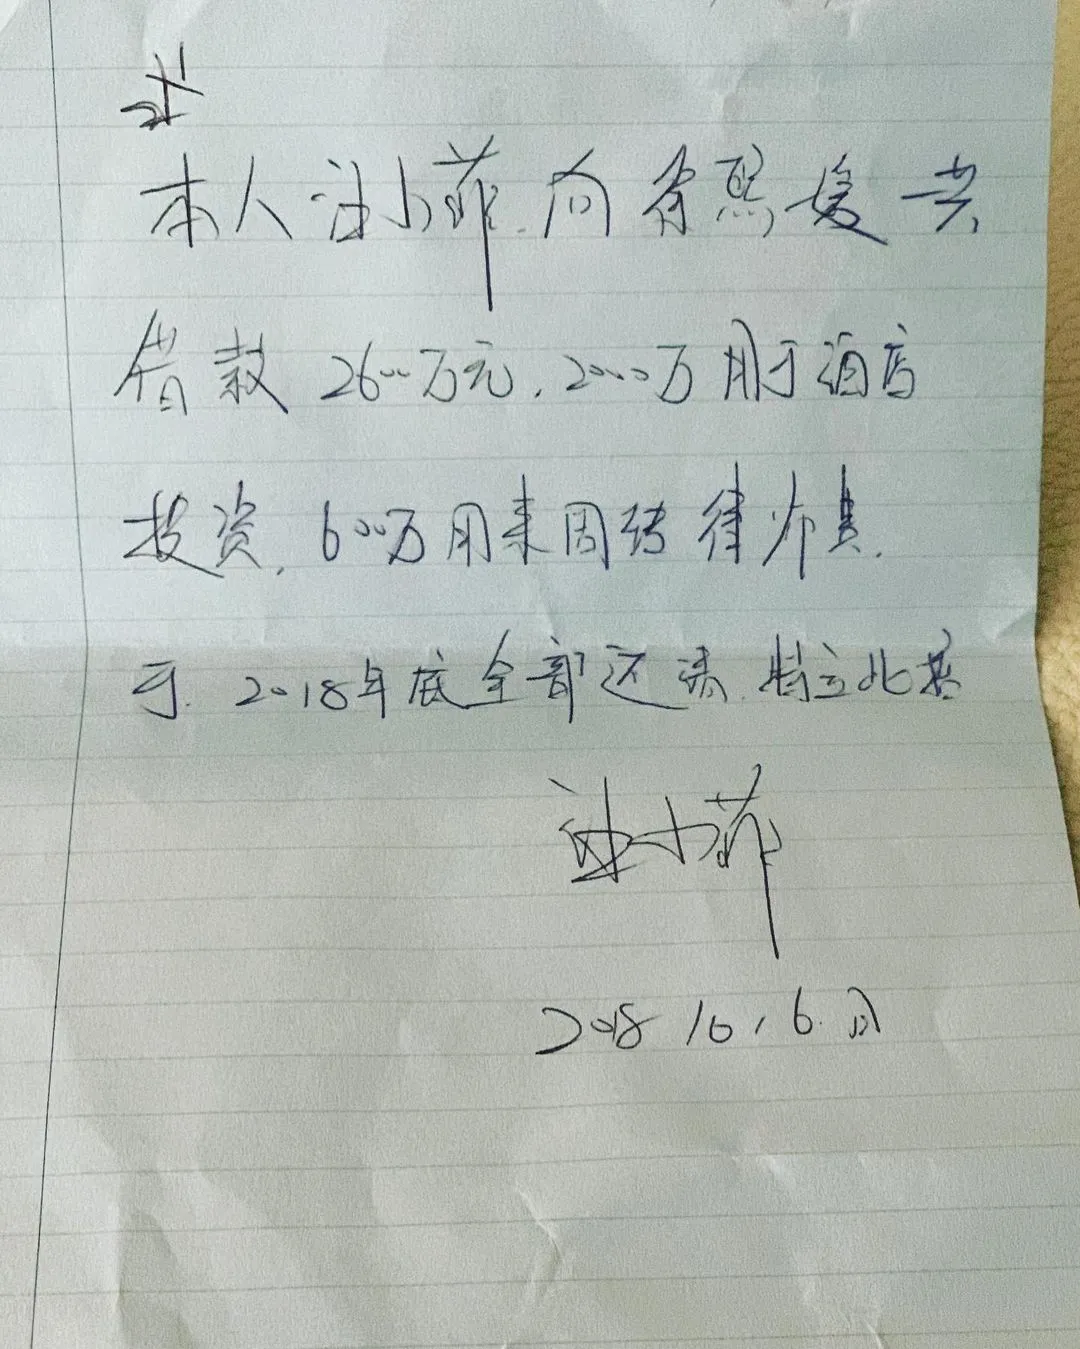 本人汪小菲.向徐熙媛共
借款 2600万元.2000万用于酒店
投资.600万用来周转律师费.
于.2018年底全部还清.特立此据
汪小菲
2018 10.6.日